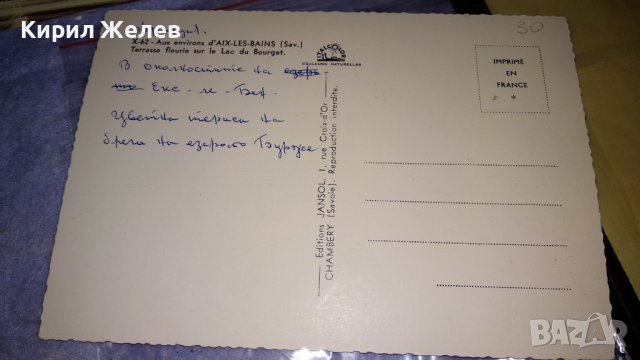 Кирил Желев
30
X-62 - Aux environs d'AIX-LES-BAINS (Sav.)
Terrasse fleurie sur le Lac du Bourget.
COULEURS NATURELLES
IMPRIMÉ
EN
FRANCE
*
В околностите на езеро
то Екс-ле-Бен
Цветна тераса на
брега на езерото Бурже
Editions JANSOL, 1, rue Croix-d'Or
CHAMBÉRY (Savoie). Reproduction interdite.
BAZAR